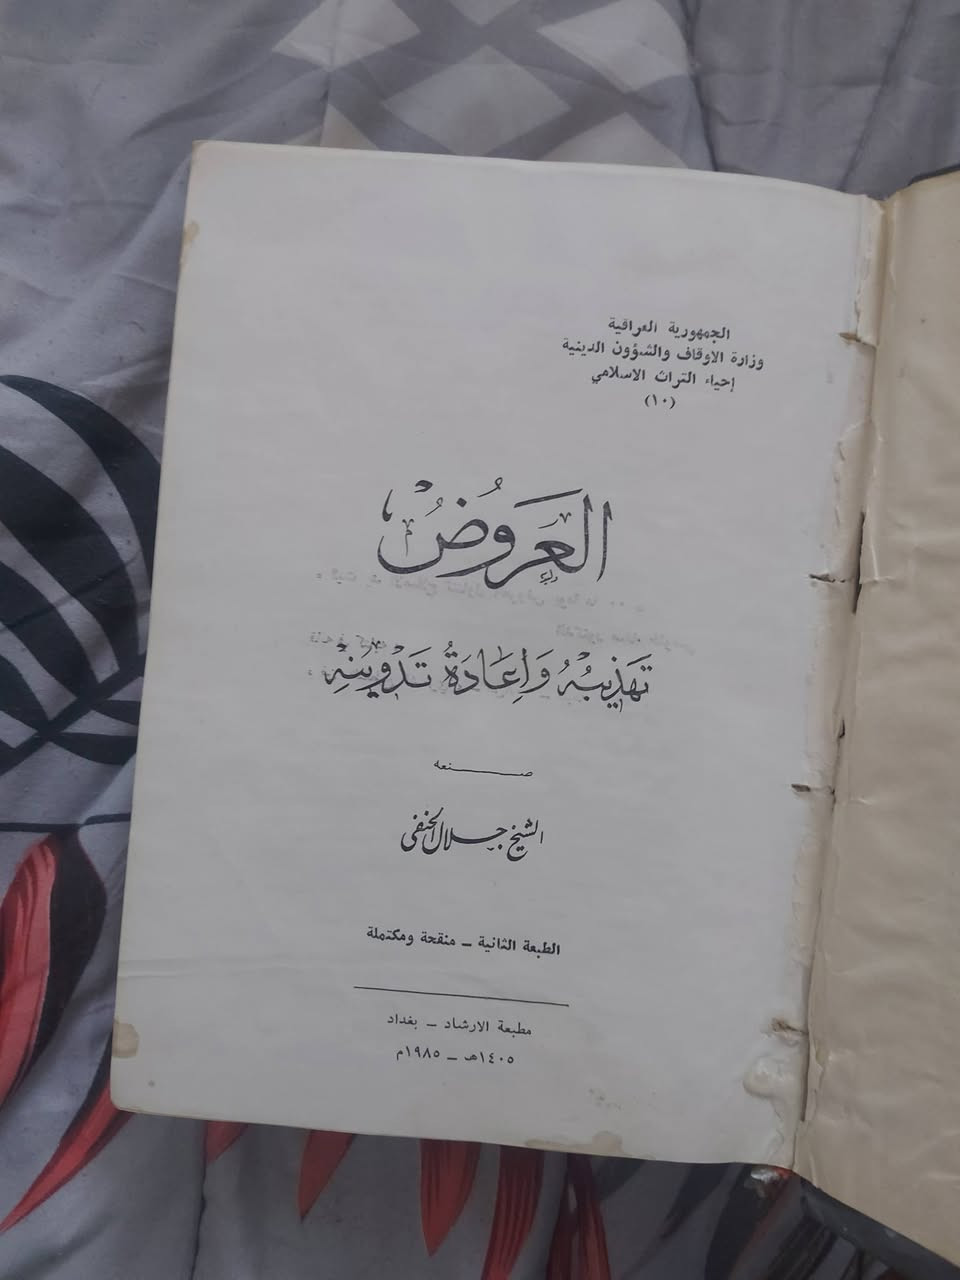 الجمهورية العراقية
وزارة الاوقاف والشؤون الدينية
إحياء التراث الاسلامي
(١٠)
العَروُضُ
تَهذِيبُهُ وَإِعَادَةُ تَدْوِينِهِ
صنعه
الشيخ جلال الحنفي
الطبعة الثانية ـ منقحة ومكتملة
مطبعة الارشاد ـ بغداد
١٤٠٥هـ ـ ١٩٨٥م